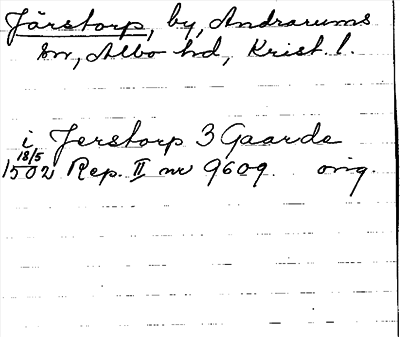 Järstorp, by, Andrarums
sn, Albo hd, Krist. l.
i Jerstorp 3 Gaarde
18/5
1502 Rep. II nr 9609. orig.